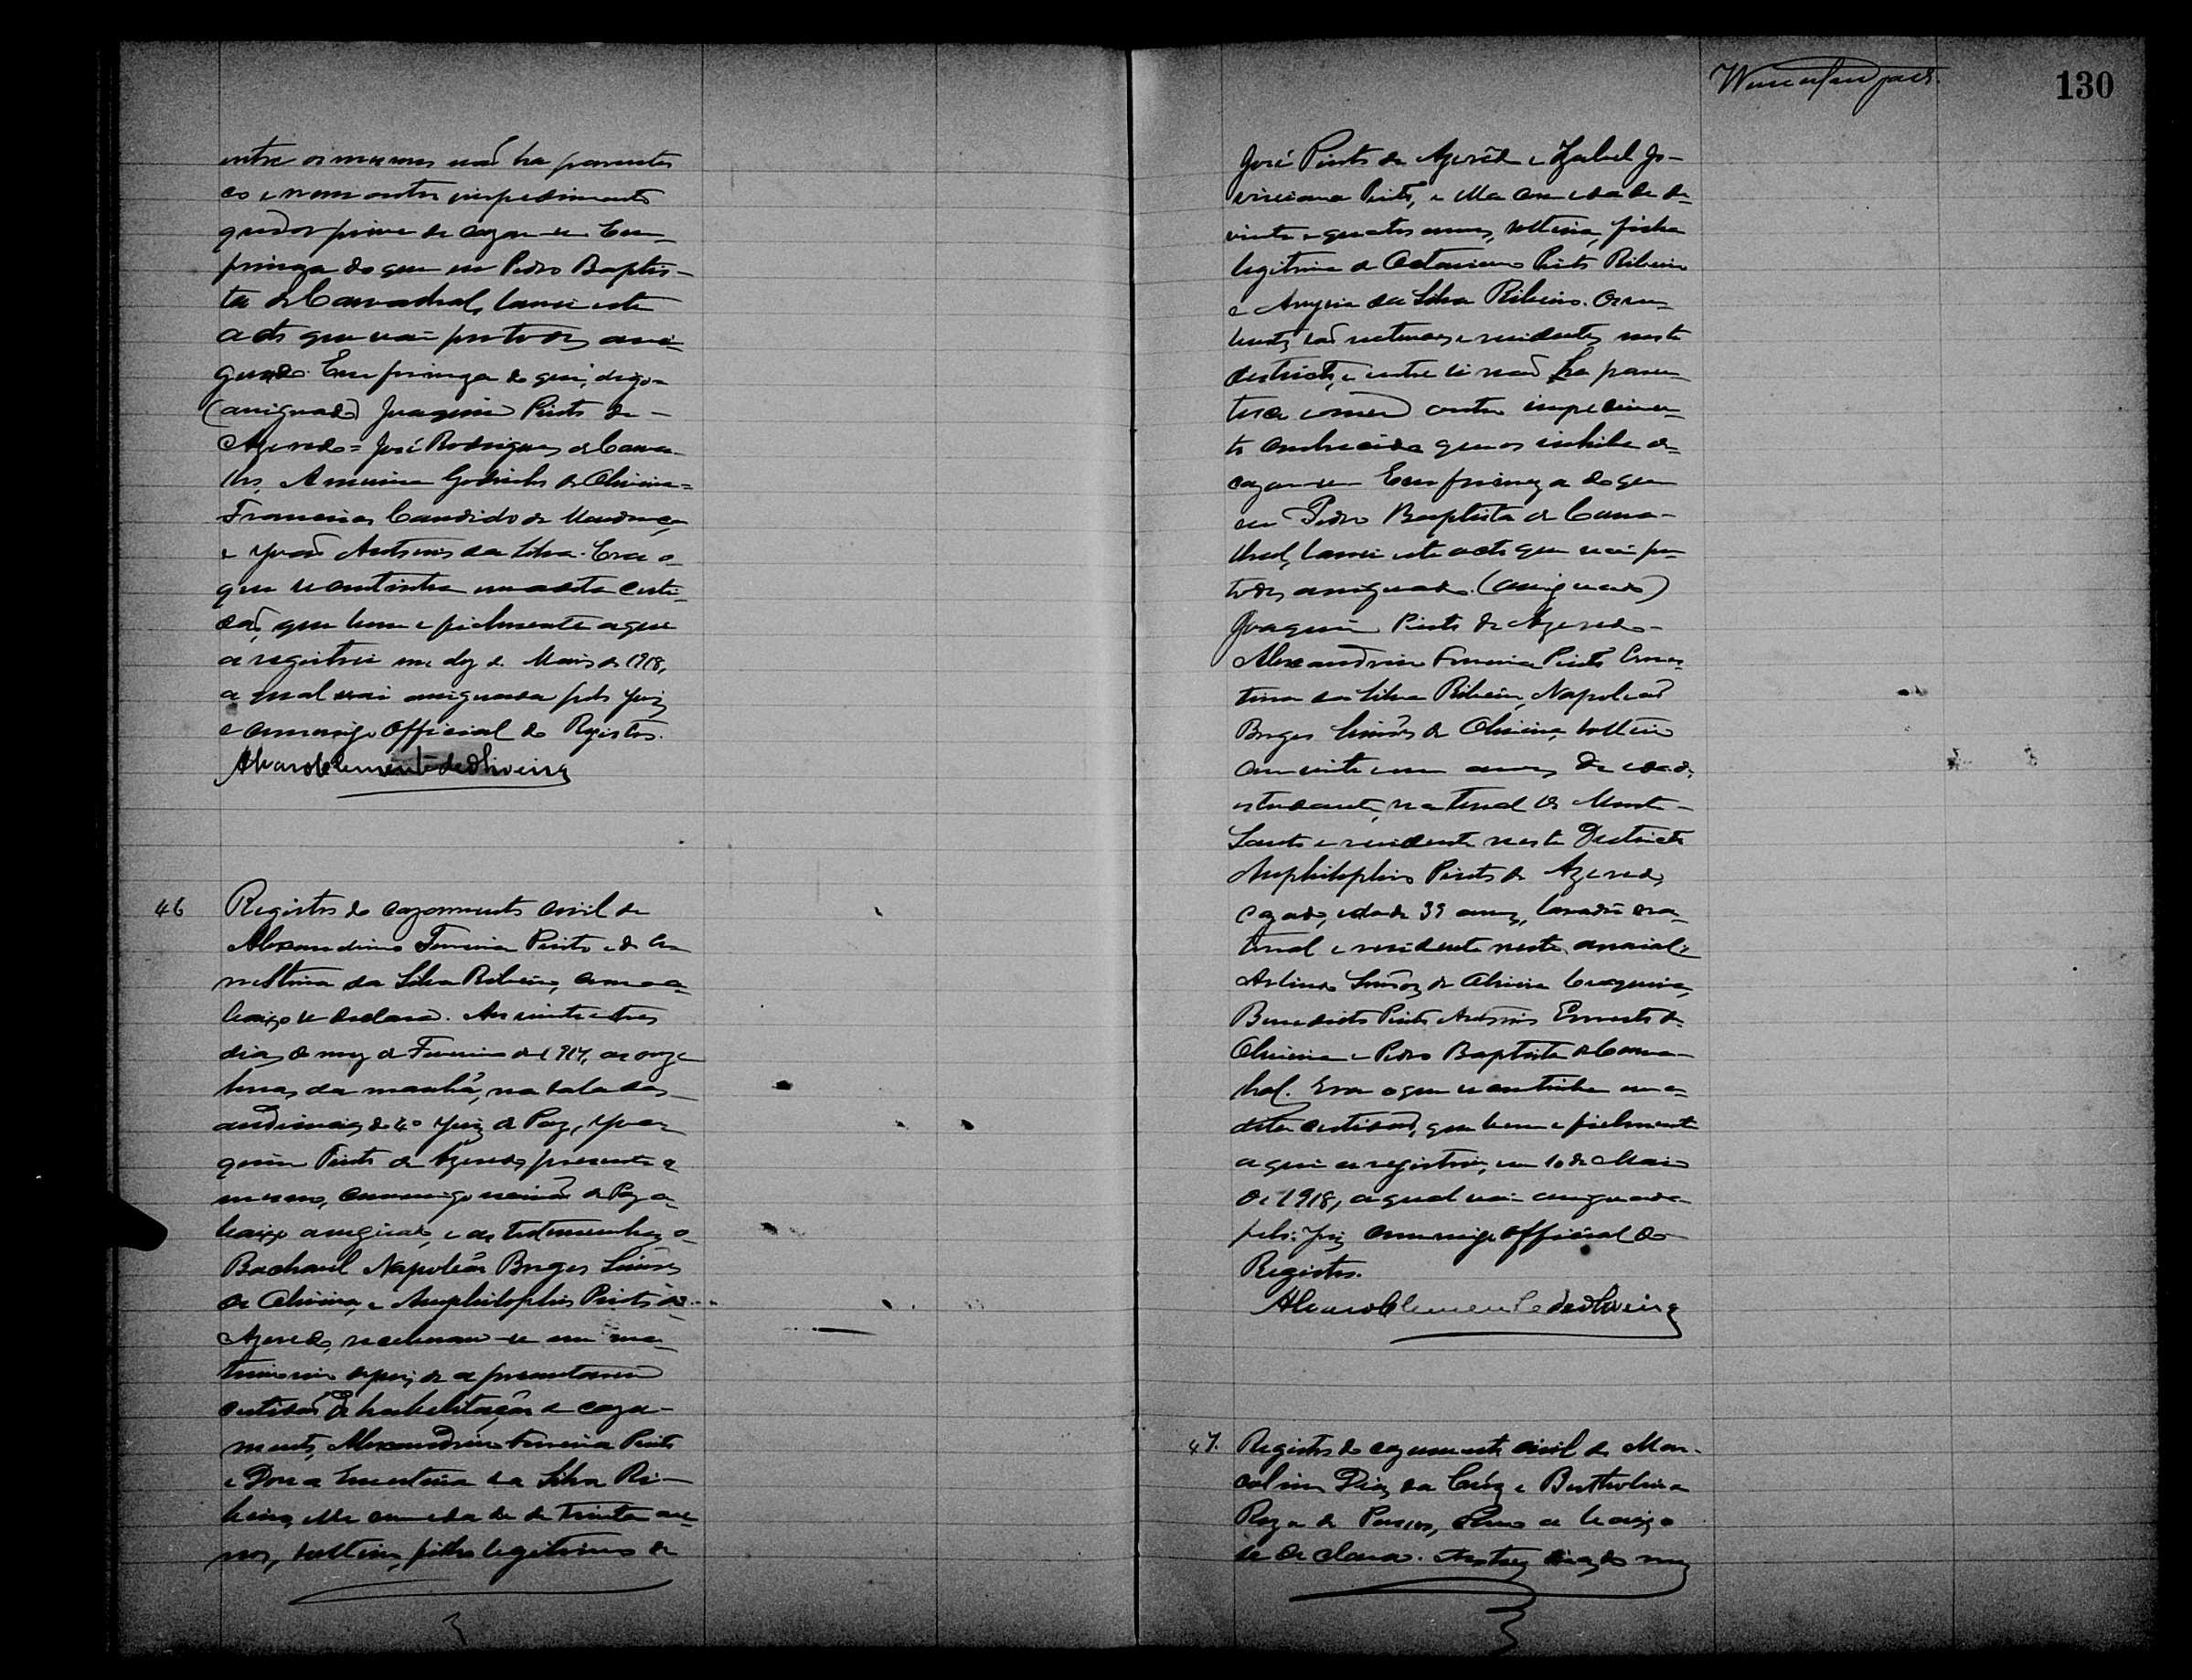 entre os mesmos não ha parentes
co e nem outro impedimento
que os prive de cazar-se. Em
firmeza do que eu Pedro Baptis-
ta de Carvalhal, lavrei este
acto que vai por todos assi-
gnado. Em firmeza do que, digo-
(assignado) Joaquim Pinto de -
Azevedo = José Rodrigues de
Godinho de Oliveira =
Francisco Candido de Mendonça
e João Antonio da Silva. Era o
que se continha na dita certi-
dão, que bem e fielmente aqui
a registrei em dez de Maio de 1918,
a qual vai assignada pelo Juiz
e commigo Official do Registro.
Alvaro Clemente de Oliveira
46 Registro do cazamento civil de
Alexandrino Ferreira Pinto e de Er
nestina da Silva Ribeiro, como a-
baixo se declara. Aos vinte e tres
dias do mez de Fevereiro de 1917, as onze
horas da manhã, na sala das
audiencias do 4º Juiz de Paz, Joa-
quim Pinto de Azevedo, presente o
mesmo, commigo escrivão de Paz a-
baixo assignado, e as testemunhas o
Bacharel Napoleão Borges Simões
de Oliveira, e Amphilophio Pinto de
Azevedo, receberam-se em ma-
trimonio depois de apresentarem
certidão de habilitação a caza-
mento, Alexandrino Ferreira Pinto
e Dona Ernestina da Silva Ri-
beiro, elle com edade de trinta an-
nos, solteiro, filho legitimo de
130
José Pinto de Azevêdo e Izabel Jo-
viniana Pinto, e ella com edade de
vinte e quatro annos, solteira, filha
legitima de Octaviano Pinto Ribeiro
e da Silva Ribeiro. Os nu-
bentes são naturaes e residentes neste
districto, e entre si não ha paren-
tesco nem outro impedimen-
to conhecido que os inhibe de
cazar-se. Em firmeza do que
eu Pedro Baptista de Carva-
lhal, lavrei este acto que vai por
todos assignado. (assignado)
Joaquim Pinto de Azevedo -
Alexandrino Ferreira Pinto, Ernes-
tina da Silva Ribeiro, Napoleão
Borges Simões de Oliveira, solteiro
com vinte e um annos de edade,
estudante, natural de Monte
Santo e residente neste Districto
Amphilophio Pinto de Azevedo,
cazado, edade 39 annos, lavrador na-
tural e residente neste arraial.
Arlindo Simões de Oliveira
Benedicto Pinto Ernesto de
Oliveira e Pedro Baptista de Carva-
lhal. Era o que se continha na
dita certidão, que bem e fielmente
aqui a registrei, em 10 de Maio
de 1918, a qual vai assignada
pelo Juiz commigo Official do
Registro.
Alvaro Clemente de Oliveira
47. Registro do cazamento civil de Mar-
colino Dias da Cruz e Bertholina
Roza de como abaixo
se declara. Aos tres dias do mez